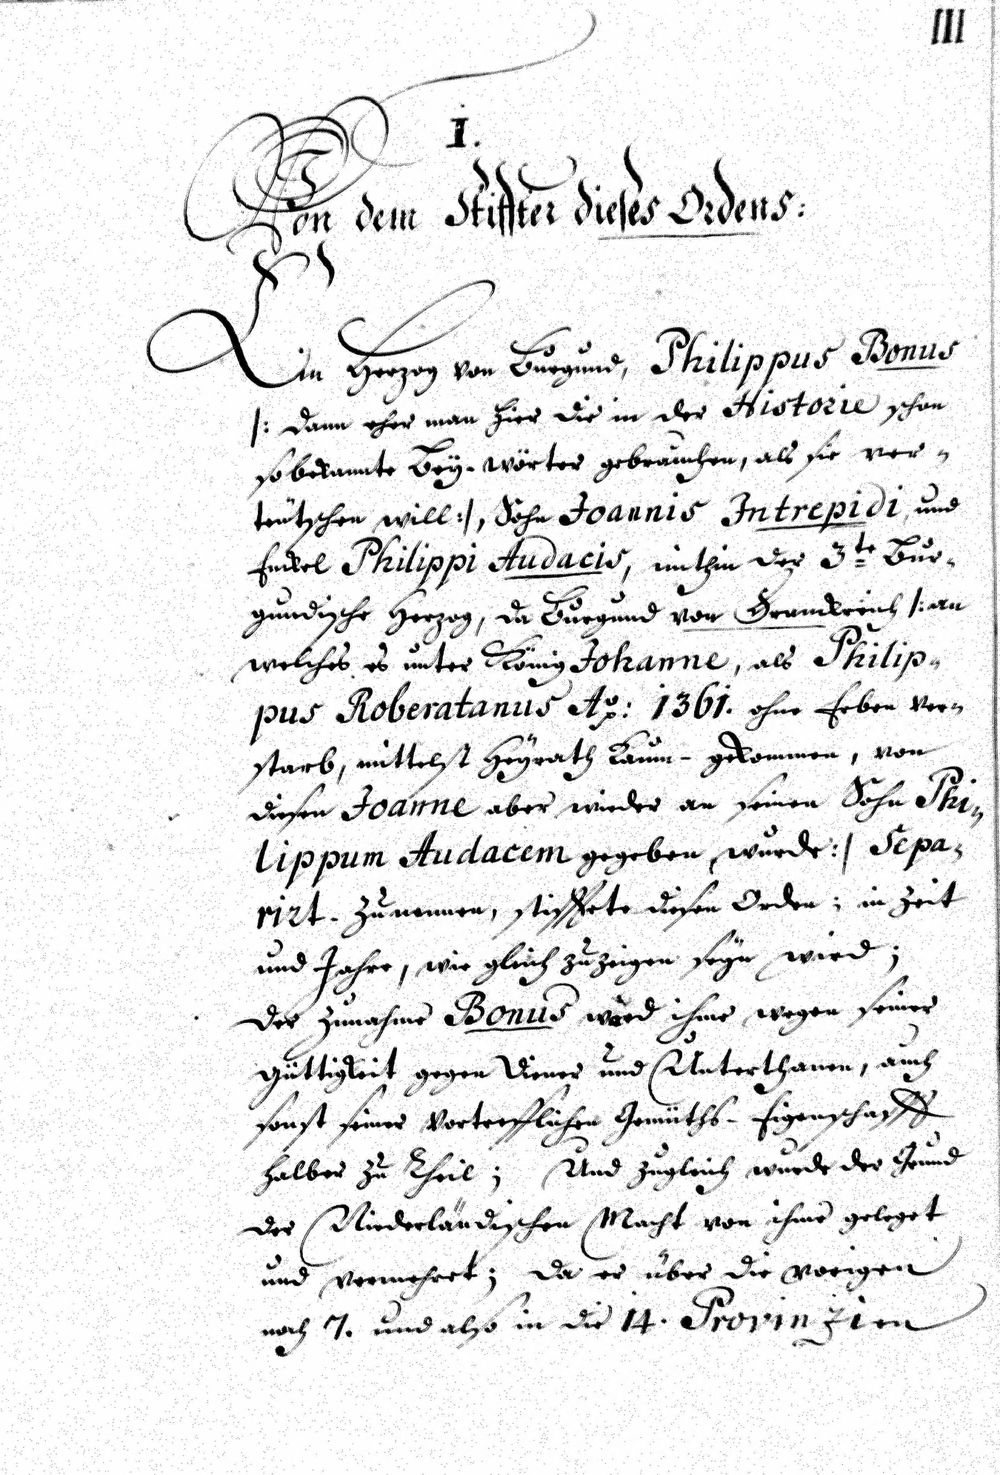 III
I.
Von dem Stiffter dieses Ordens:
Ein Herzog von Burgund, Philippus Bonus
/: dann eher man hier die in der Historie schon
so bekannte Bey-wörter gebrauchen, als sie ver-
teutschen will :/, Sohn Joannis Intrepidi, und
Enckel Philippi Audacis, mithin der 3te Bur-
gundische Herzog, da Burgund von Franckreich /: an
welches es unter König Johanne, als Philip-
pus Roberatanus Ao: 1361. ohne Erben ver-
starb, mittelst Heyrath kaum-gekommen, von
diesen Joanne aber wieder an seinen Sohn Phi-
lippum Audacem gegeben wurde :/ Sepa-
rirt. zu nennen, stifftete diesen Orden; in Zeit
und Jahre, wie gleich zu zeigen seyn wird;
der Zunahme Bonus ward ihme wegen seiner
Güttigkeit gegen Diener und Unterthanen, auch
sonst seiner Vortrefflichen Gemüths-Eigenschafft
halber zu Theil; Und zugleich wurde der Grund
der Niederländischen Macht von ihme geleget
und vermehret; da er über die vorigen
noch 7. und also in die 14. Provinzien